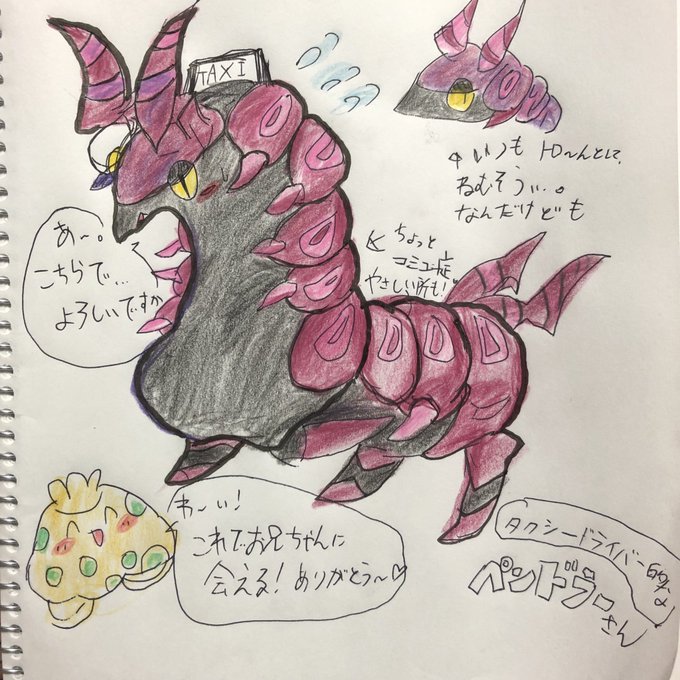 TAXI
↑いつも トロ〜んとして、
ねむそうぃ〜。
なんだけども
←ちょっと
コミュ症
やさしい所も!
あ〜。
こちらで…
よろしいですか
わ〜い!
これでお兄ちゃんに
会える!ありがとう〜♡
タクシードライバー的な
ペンドラー
さん